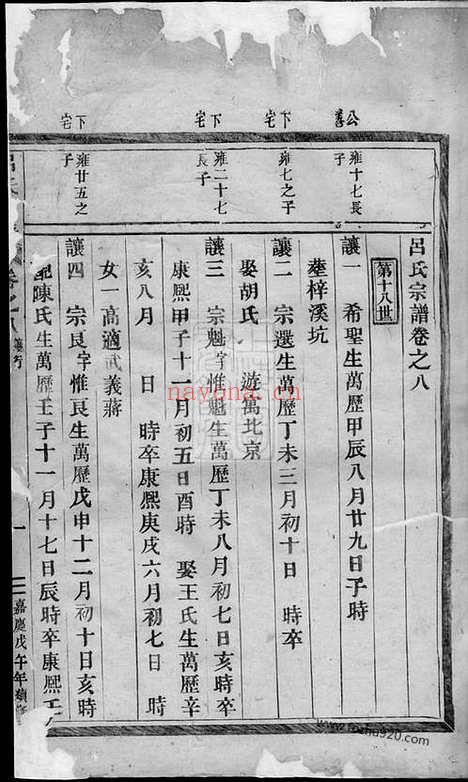 呂氏宗譜卷之八
第十八世
公善
雍十七長子
讓一 希聖生萬歷甲辰八月廿九日子時
塟梓溪坑
下宅
雍七之子
讓二 宗選生萬歷丁未三月初十日 時卒
娶胡氏 遊萬北京
下宅
雍二十七長子
讓三 宗魁字惟魁生萬歷丁未八月初七日亥時卒
康熙甲子十一月初五日酉時 娶王氏生萬歷辛
亥八月 日 時卒康熙庚戌六月初七日 時
女一高適武義蔣
下宅
雍廿五之子
讓四 宗良字惟良生萬歷戊申十二月初十日亥時
配陳氏生萬歷壬子十一月十七日辰時卒康熙壬
卷之八
讓行
一
嘉慶戊午年
nayona.cn